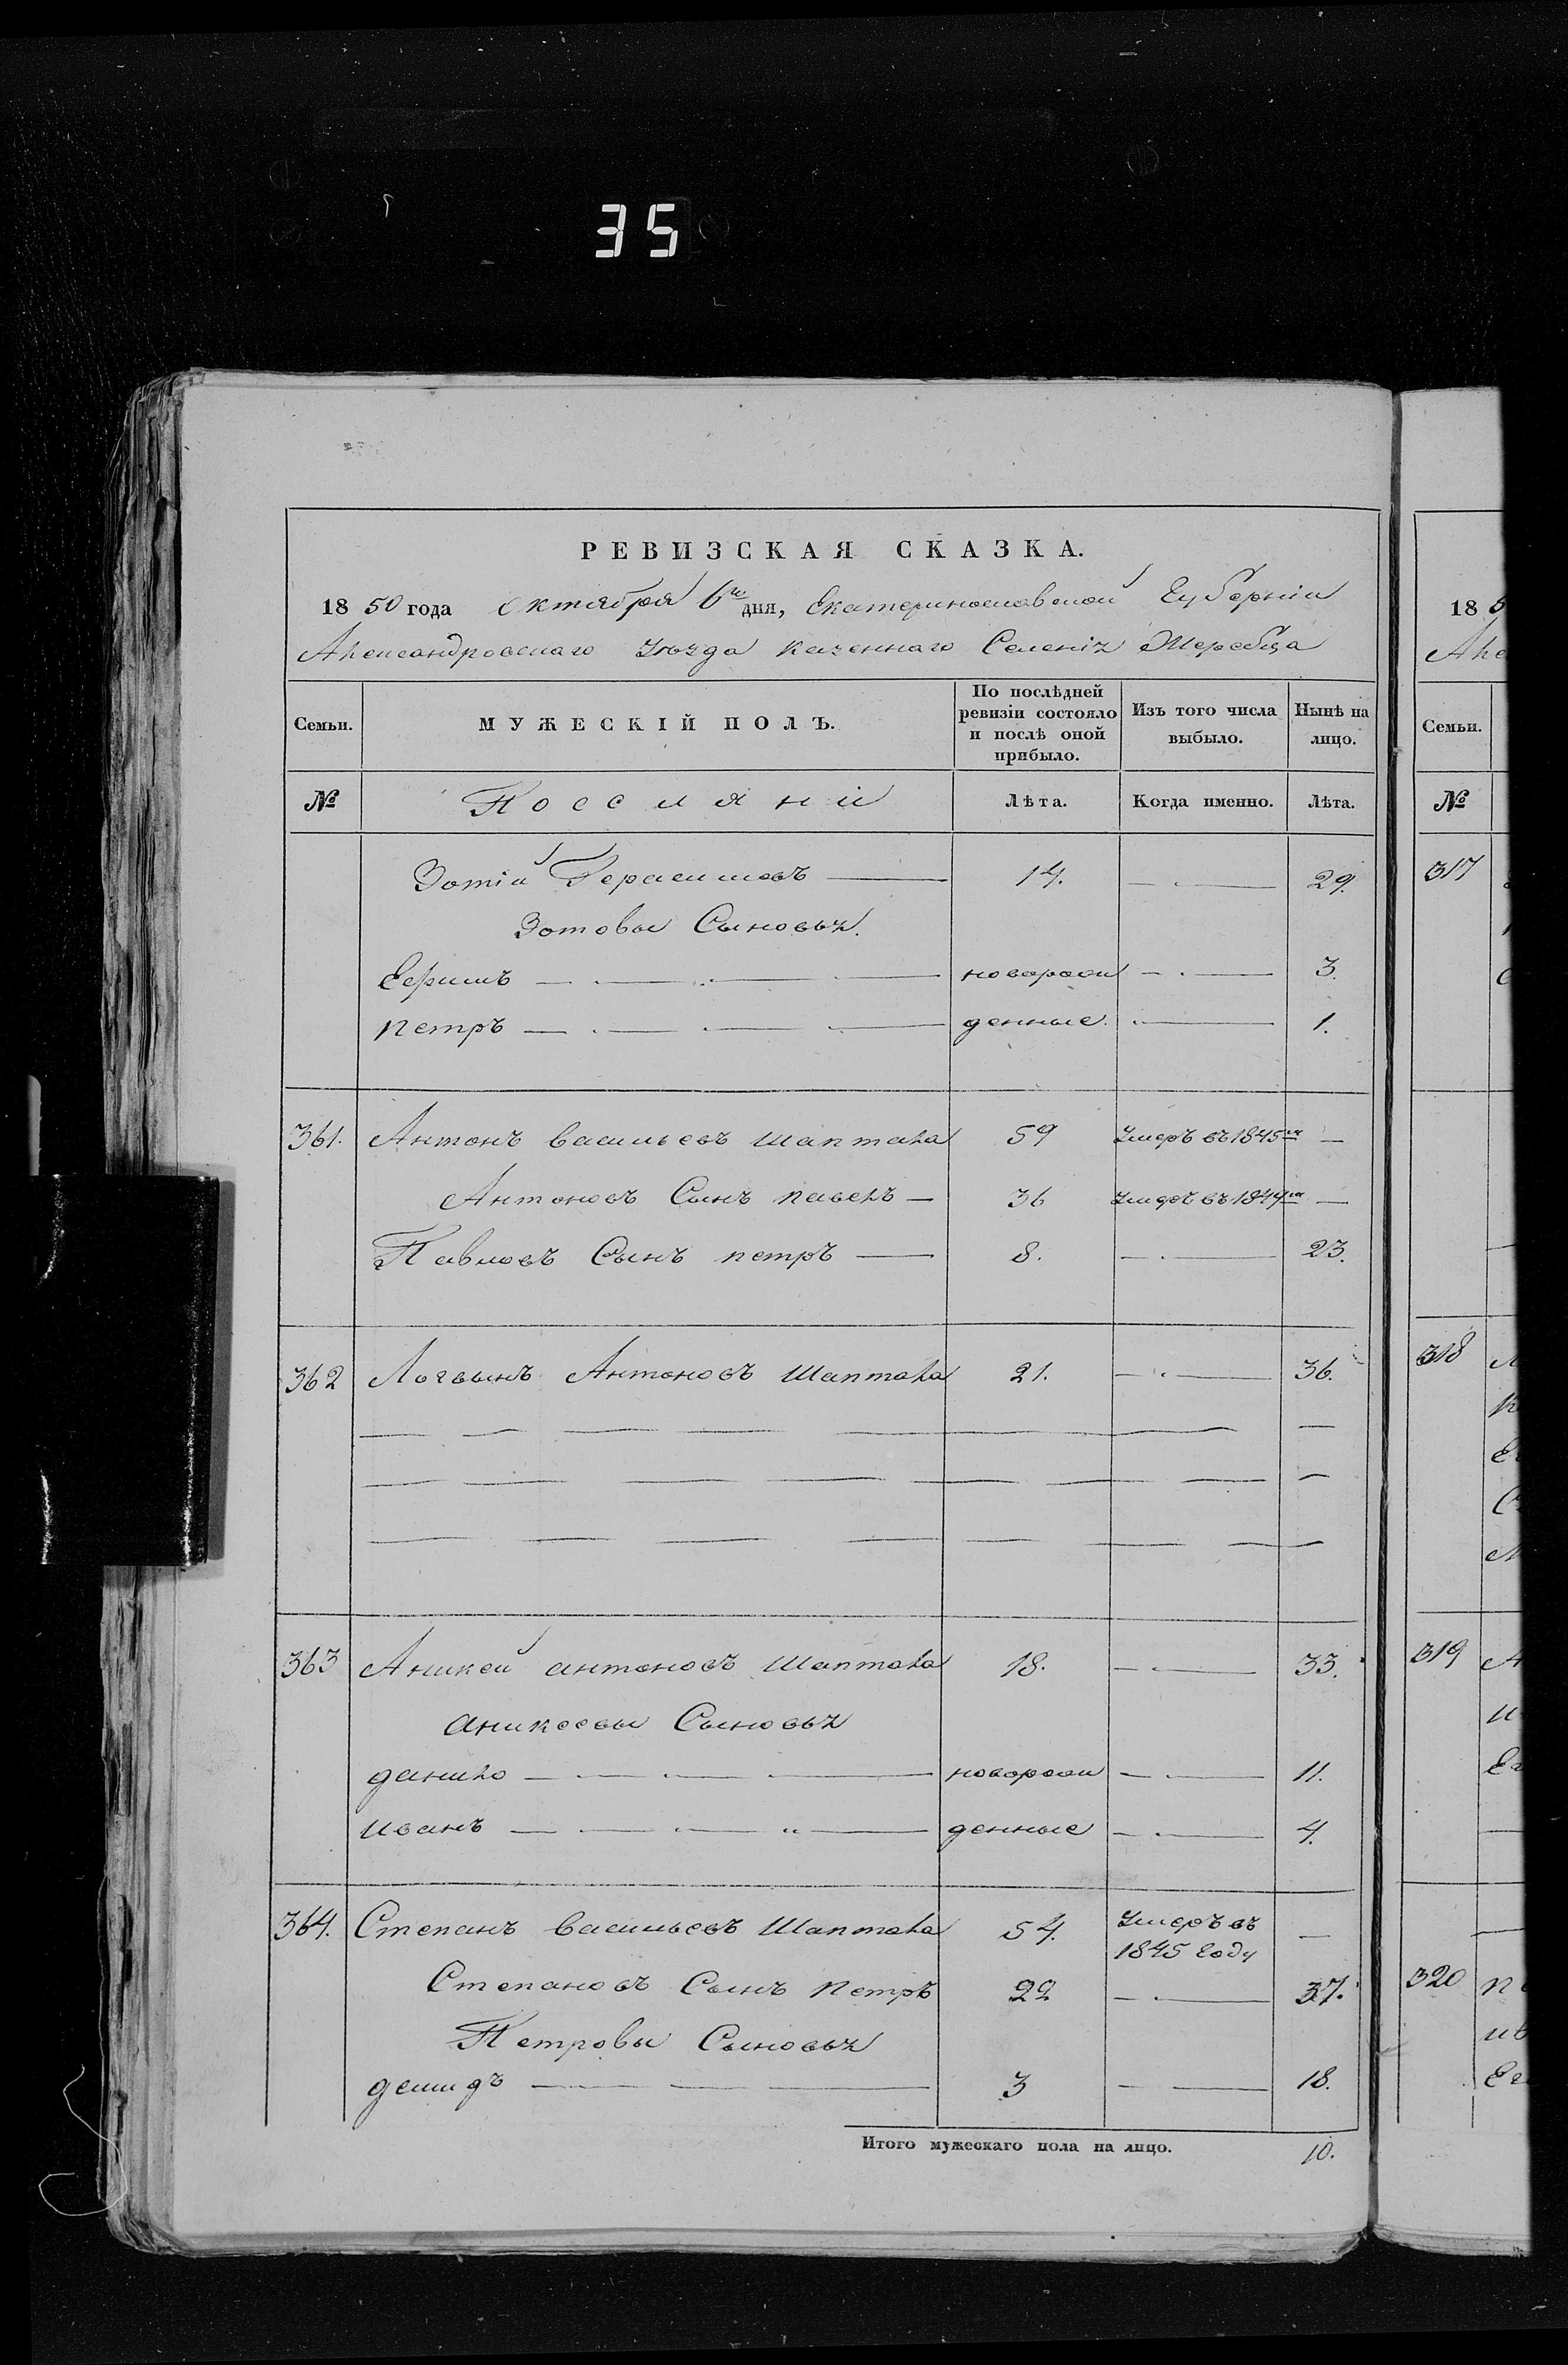 35
РЕВИЗСКАЯ СКАЗКА.
1850 года Октября 6го дня, Екатеринославской Губерніи
Александровскаго Уѣзда казеннаго Селенія Жеребца
Семьи. МУЖЕСКІЙ ПОЛЪ. По послѣдней ревизіи состояло и послѣ оной прибыло. Изъ того числа выбыло. Нынѣ на лицо.
№ Поселяни Лѣта. Когда именно. Лѣта.
Зотій Герасимовъ — 14. — 29.
Зотовы Сыновья.
Ефимъ — новорож — 3.
петръ — денные. — 1.
361. Антонъ васильевъ шаптала 59 Умеръ въ 1845м —
Антоновъ Сынъ павелъ — 36 Умеръ въ 1844м —
Павловъ Сынъ петръ — 8. — 23.
362 Логвынъ Антоновъ Шаптала 21. — 36.
363 Аникей антоновъ Шаптала 18. — 33.
аникеевы Сыновья
данило — новорож — 11.
иванъ — денные — 4.
364. Степанъ васильевъ Шаптала 54. Умеръ въ 1845 Году —
Степановъ Сынъ Петръ 22 — 37.
Петровы Сыновья
демидъ — 3 — 18.
Итого мужескаго пола на лицо. 10.
18 5
Але
Семьи.
№
317
318
319
320